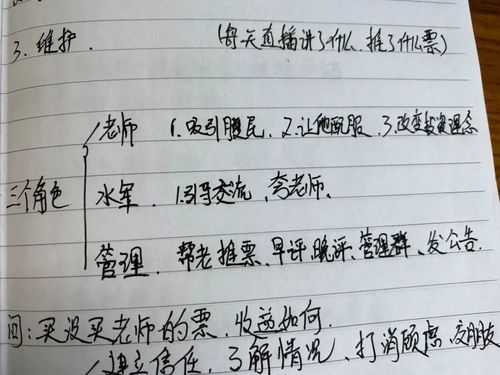 3. 维护. (每天直播讲了什么.推了什么票)
老师 1.吸引股民、2.让他配服、3.改变投资理念
三个角色 水军. 1.引导交流,夸老师、
管理. 帮老推票、早评、晚评、管理群、发公告.
问:买没买老师的票、收益如何.
建立信任、了解情况、打消顾虑、交朋友